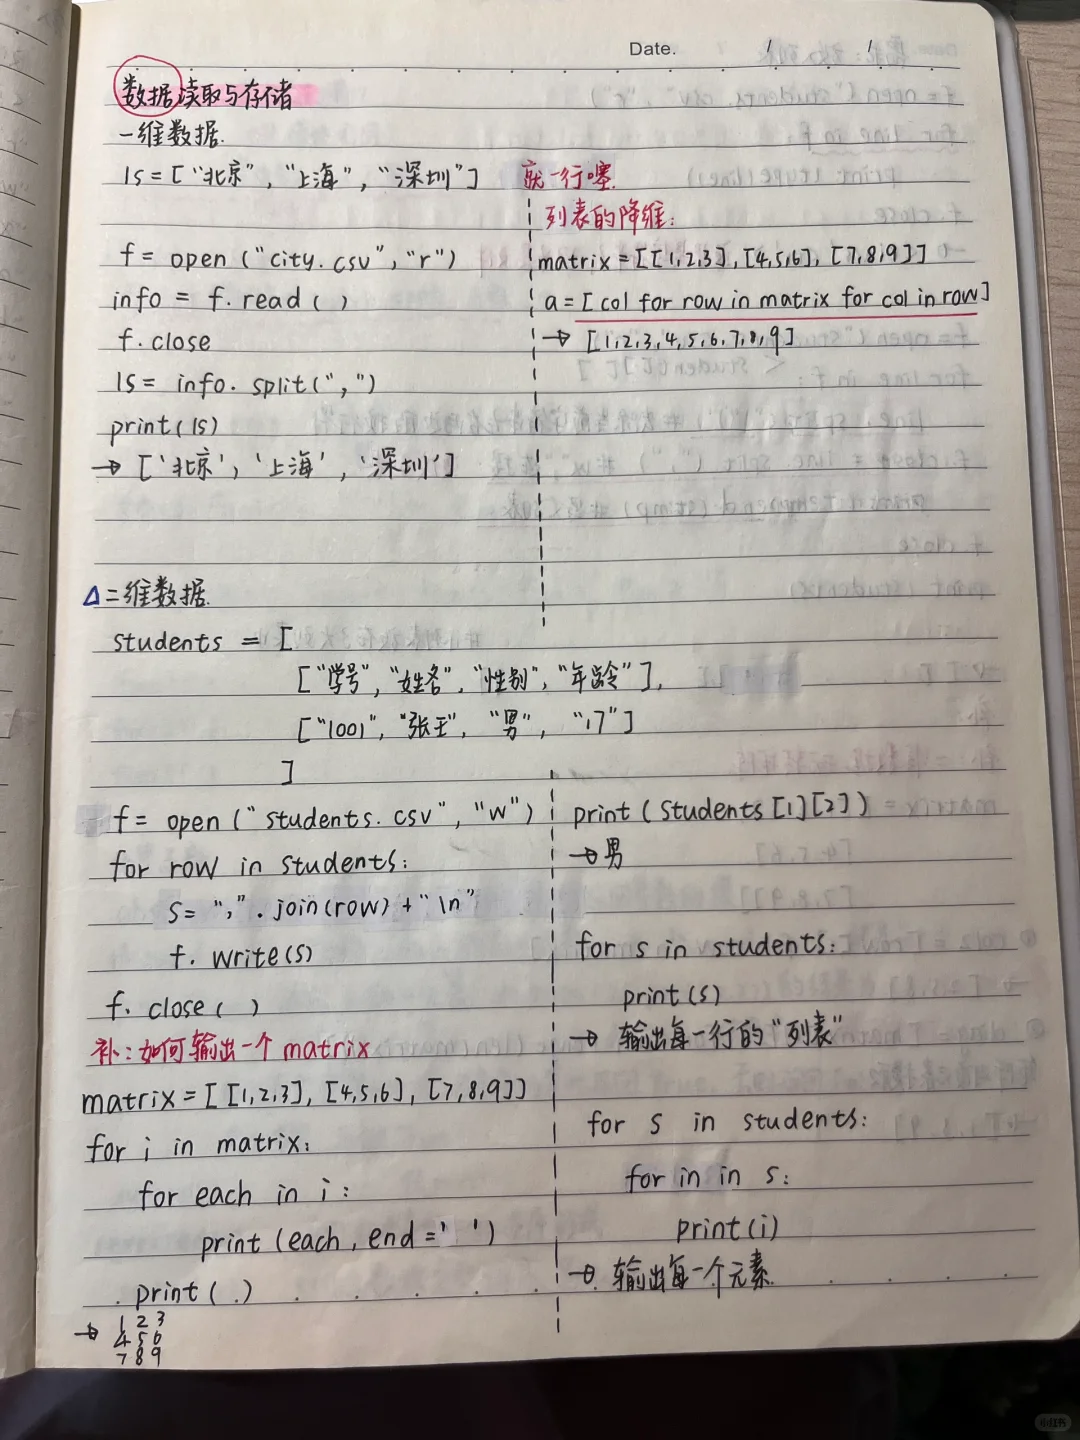 Date. / /
数据读取与存储
一维数据.
ls = ["北京", "上海", "深圳"] 就一行噻.
f = open ("city.csv","r")
info = f.read ( )
f.close
ls = info.split(",")
print(ls)
→ ['北京', '上海', '深圳']
列表的降维:
matrix = [[1,2,3], [4,5,6], [7,8,9]]
a = [col for row in matrix for col in row]
→ [1,2,3,4,5,6,7,8,9]
△二维数据.
students = [
["学号", "姓名", "性别", "年龄"],
["1001", "张王", "男", "17"]
]
f = open ("students.csv", "w")
for row in students:
s = ",".join(row) + "\n"
f. write(s)
f. close ( )
补:如何输出一个 matrix
matrix = [[1,2,3], [4,5,6], [7,8,9]]
for i in matrix:
for each in i :
print (each, end =' ')
print ( )
→ 1 2 3
4 5 6
7 8 9
print (students [1][2])
→ 男
for s in students:
print (s)
→ 输出每一行的"列表"
for s in students:
for in in s:
print(i)
→ 输出每一个元素.
小红书